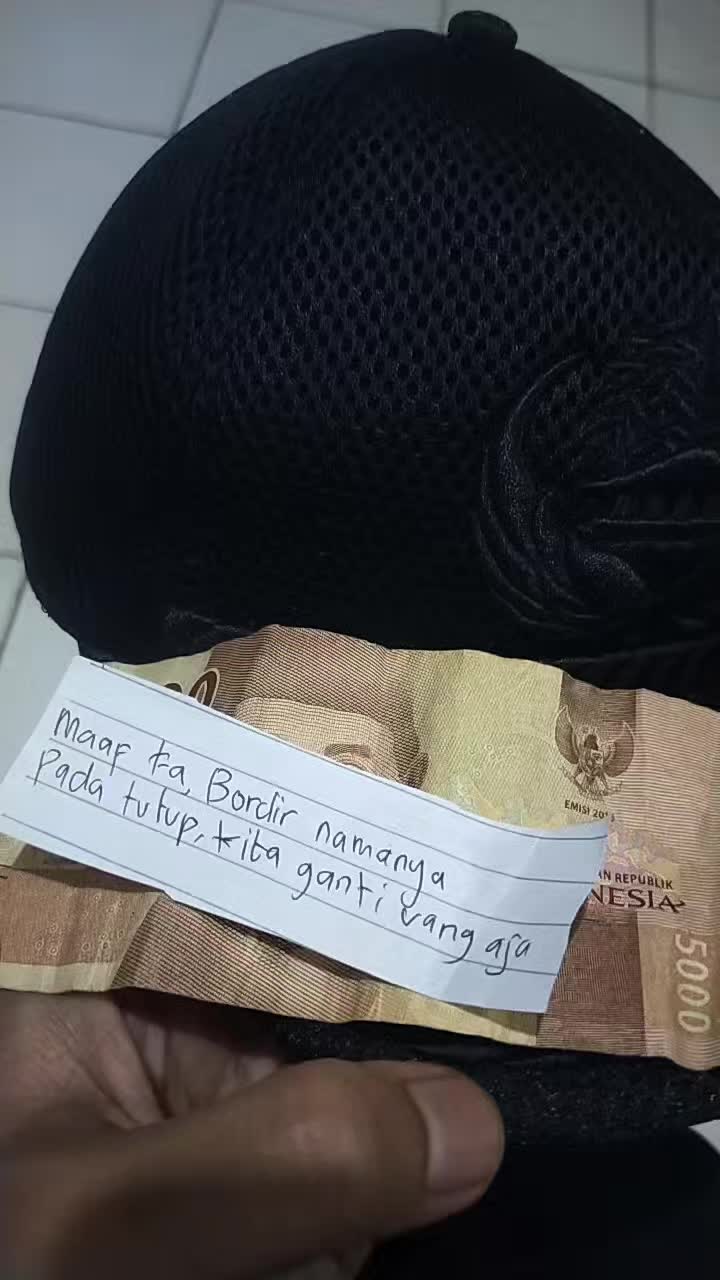 Maaf ka, Bordir namanya
pada tutup, kita ganti uang aja
EMISI 201
AN REPUBLIK
NESIA
5000